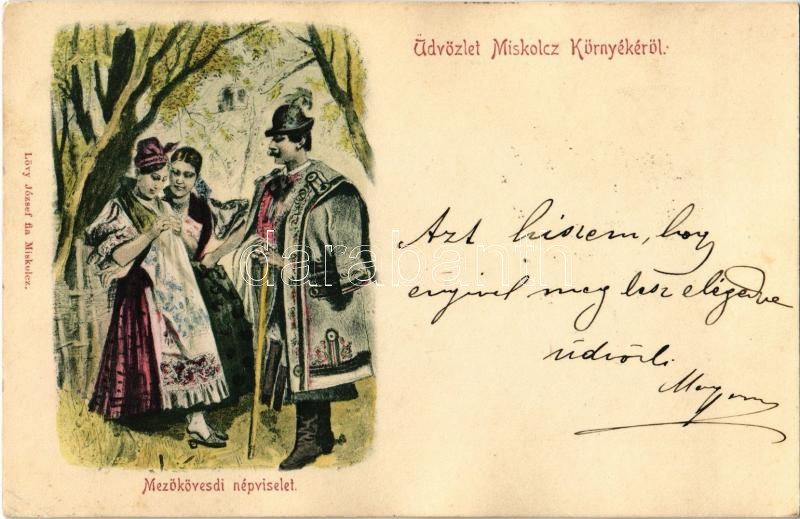 Üdvözlet Miskolcz Környékéröl.
Lövy József fia Miskolcz.
Azt hiszem, hogy
enyivel meg lesz elégedve
üdvözli
Mezökövesdi népviselet.
darabanth